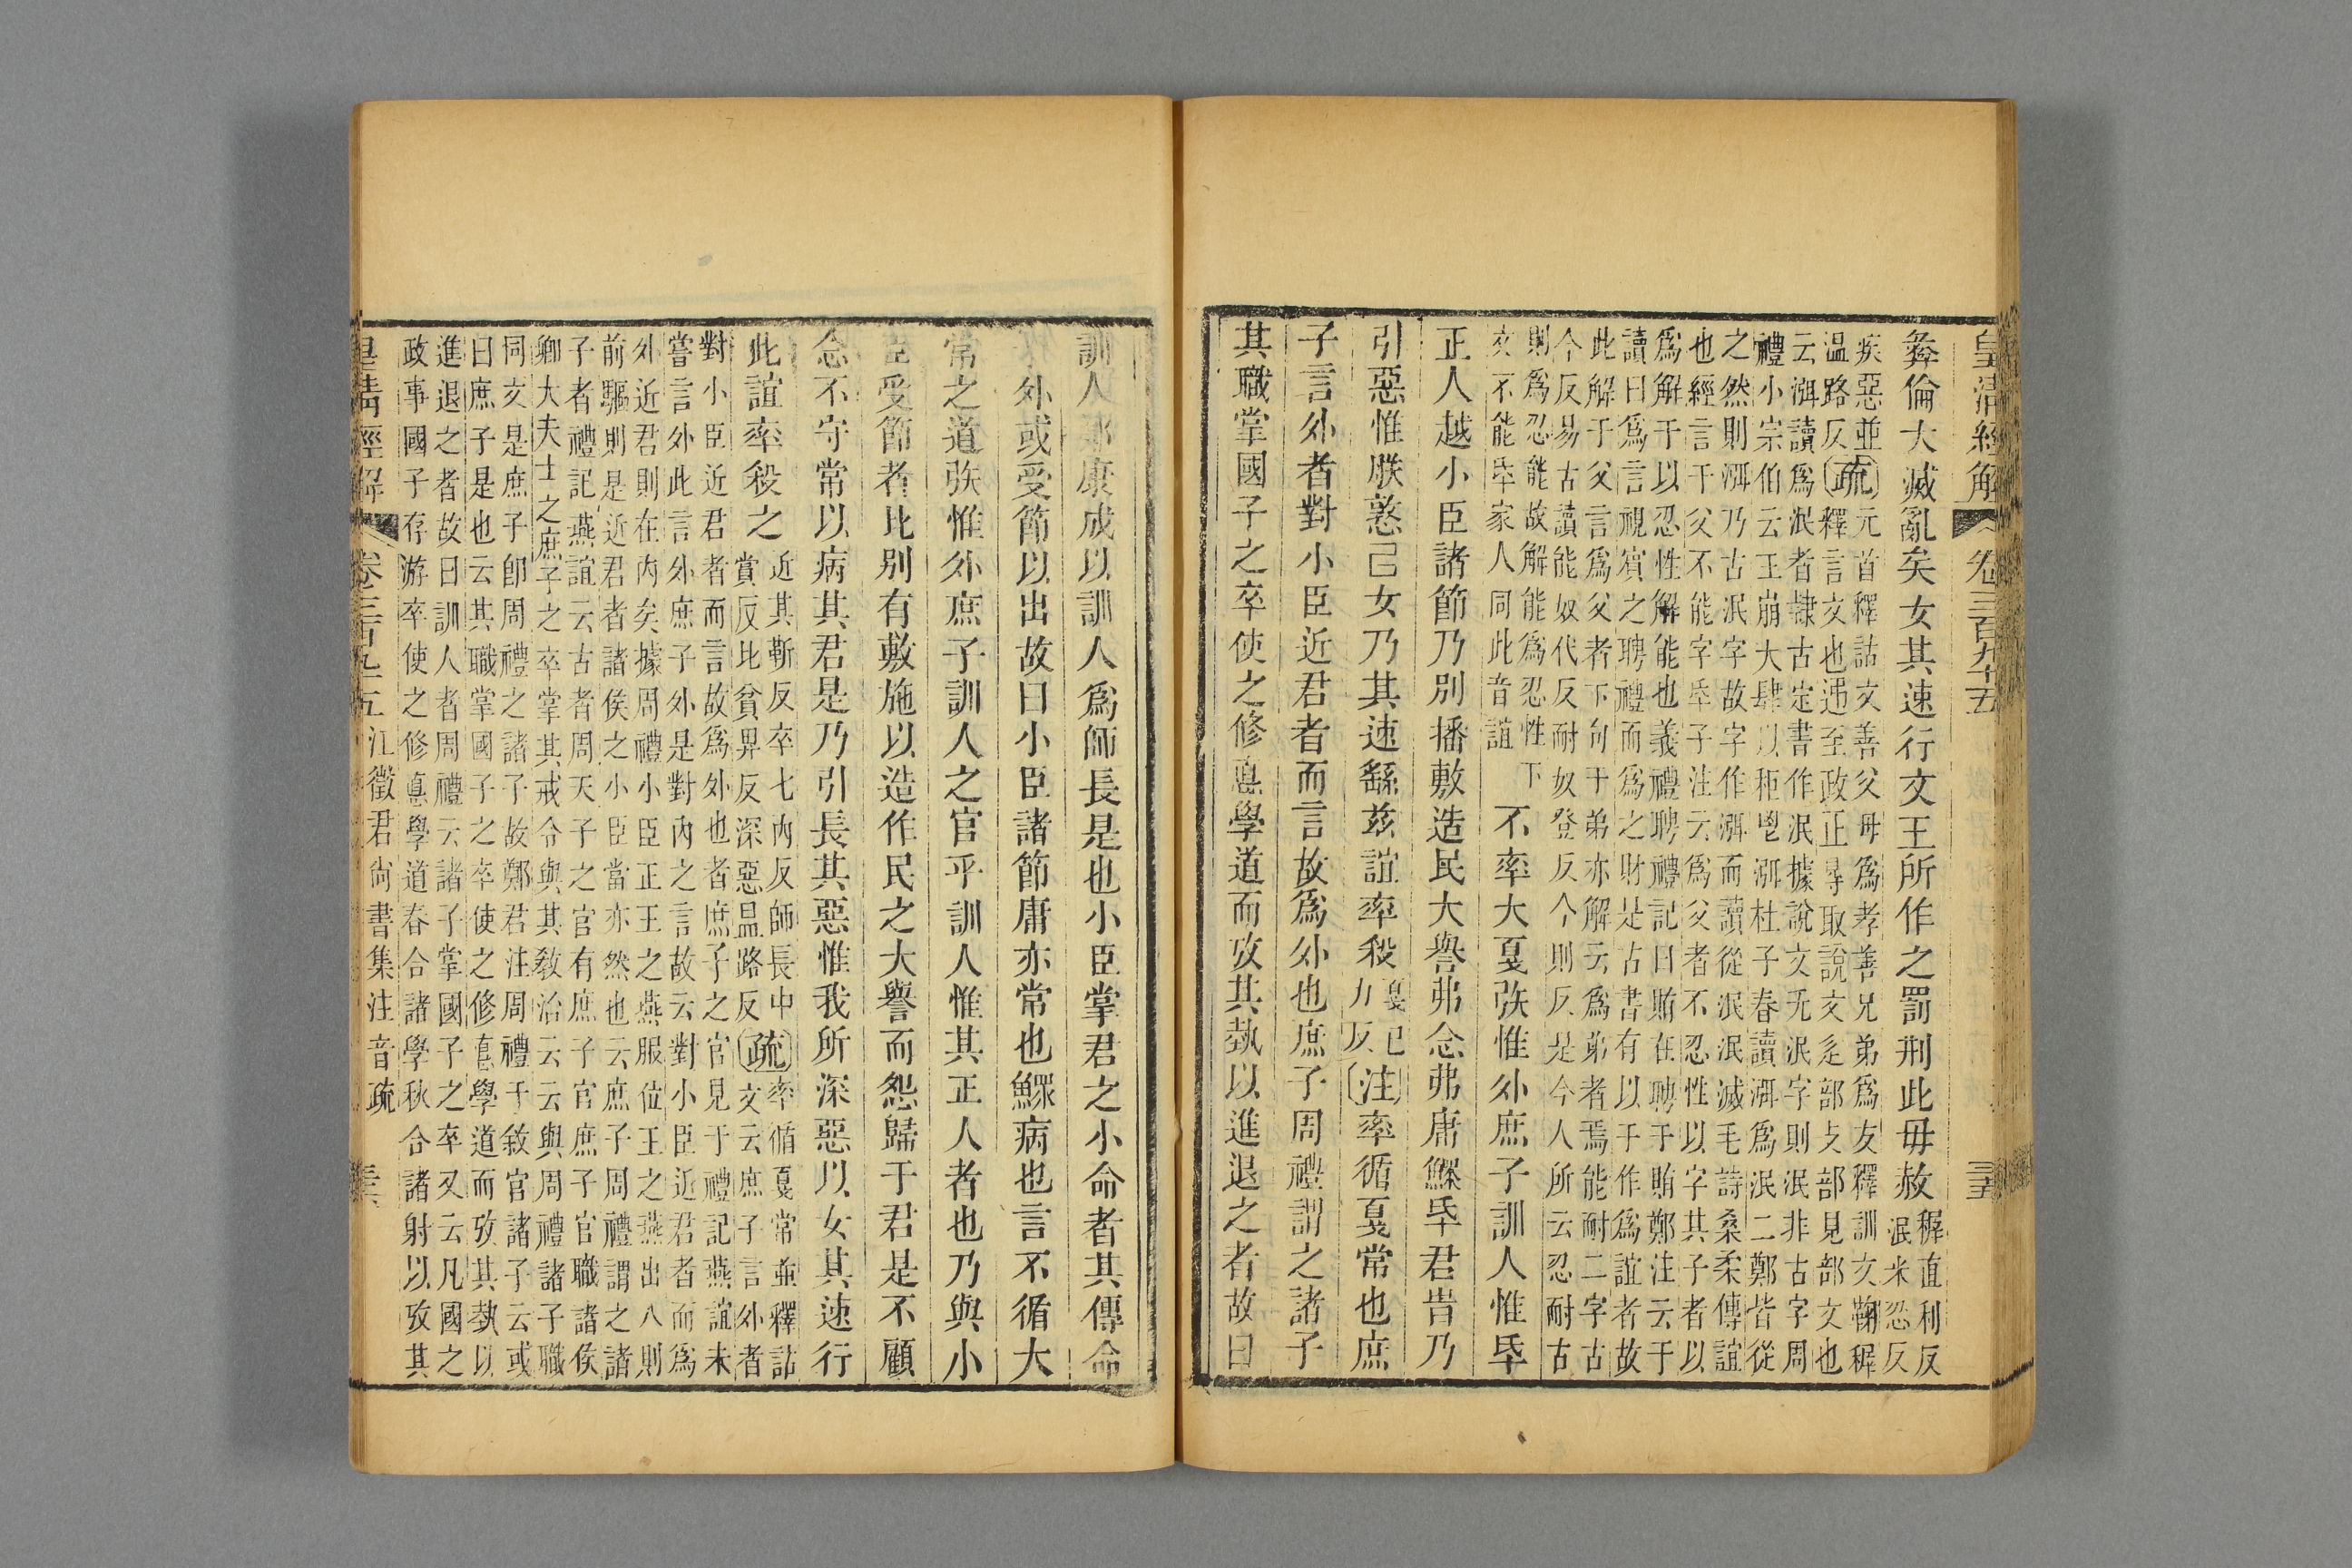 皇清經解 卷三百九十五 三五
彝倫大滅亂矣女其速行文王所作之罰刑此毋赦穉直利反
泯米忍反
疾惡並㽷元首釋詁文善父母爲孝善兄弟爲友釋訓文鞠穉
温路反疏釋言文也迺至政正㝷取說文辵部攴部見部文也
云湏讀爲泯者隸古定書作泯據說文无泯字則泯非古字周
禮小宗伯云王崩大肆以秬鬯湏杜子春讀湏爲泯二鄭皆從
之然則湏乃古泯字故字作湏而讀從泯泯滅毛詩桑柔傳誼
也經言于父不能字氒子注云爲父者不忍性以字其子者以
爲解于以忍性解能也義禮聘禮記曰賄在聘于賄鄭注云于
讀曰爲言視賓之聘禮而爲之財是古書有以于作爲誼者故
此解于父言爲父者下句于弟亦解云爲弟者焉能耐二字古
今反易古讀能奴代反耐奴登反今則仄是今人所云忍耐古
則爲忍能故解能爲忍性下
亥不能氒家人同此音誼
不率大戛矧惟外庶子訓人惟氒
正人越小臣諸節乃別播敷造民大譽弗念弗庸鰥氒君旹乃
引惡惟朕憝己女乃其速繇兹誼率殺戛已力仄注率循戛常也庶
子言外者對小臣近君者而言故爲外也庶子周禮謂之諸子
其職掌國子之卒使之修悳學道而攷其埶以進退之者故曰
訓人康成以訓人爲師長是也小臣掌君之小命者其傳命
外或受節以出故曰小臣諸節庸亦常也鰥病也言不循大
常之道矧惟外庶子訓人之官乎訓人惟其正人者也乃與小
臣受節者比别有敷施以造作民之大譽而怨歸于君是不顧
念不守常以病其君是乃引長其惡惟我所深惡以女其速行
此誼率殺之近其靳反卒七內反師長中疏率循戛常並釋詁
賞反比貧畀反深惡温路反文云庶子言外者
對小臣近君者而言故爲外也者庶子之官見于禮記燕誼未
嘗言外此言外庶子外是對內之言故云對小臣近君者而爲
外近君則在內矣據周禮小臣正王之燕服位王之燕出入則
前驅則是近君者諸侯之小臣當亦然也云庶子周禮謂之諸
子者禮記燕誼云古者周天子之官有庶子官庶子官職諸侯
卿大夫士之庶子之卒掌其戒令與其敎治云云與周禮諸子職
同文是庶子卽周禮之諸子故鄭君注周禮于敘官諸子云或
曰庶子是也云其職掌國子之卒使之修悳學道而攷其埶以
進退之者故曰訓人者周禮云諸子掌國子之卒又云凡國之
政事國子存游卒使之修悳學道春合諸學秋合諸射以攷其
皇淸經解 卷三百九十五 江徵君尙書集注音疏 三六